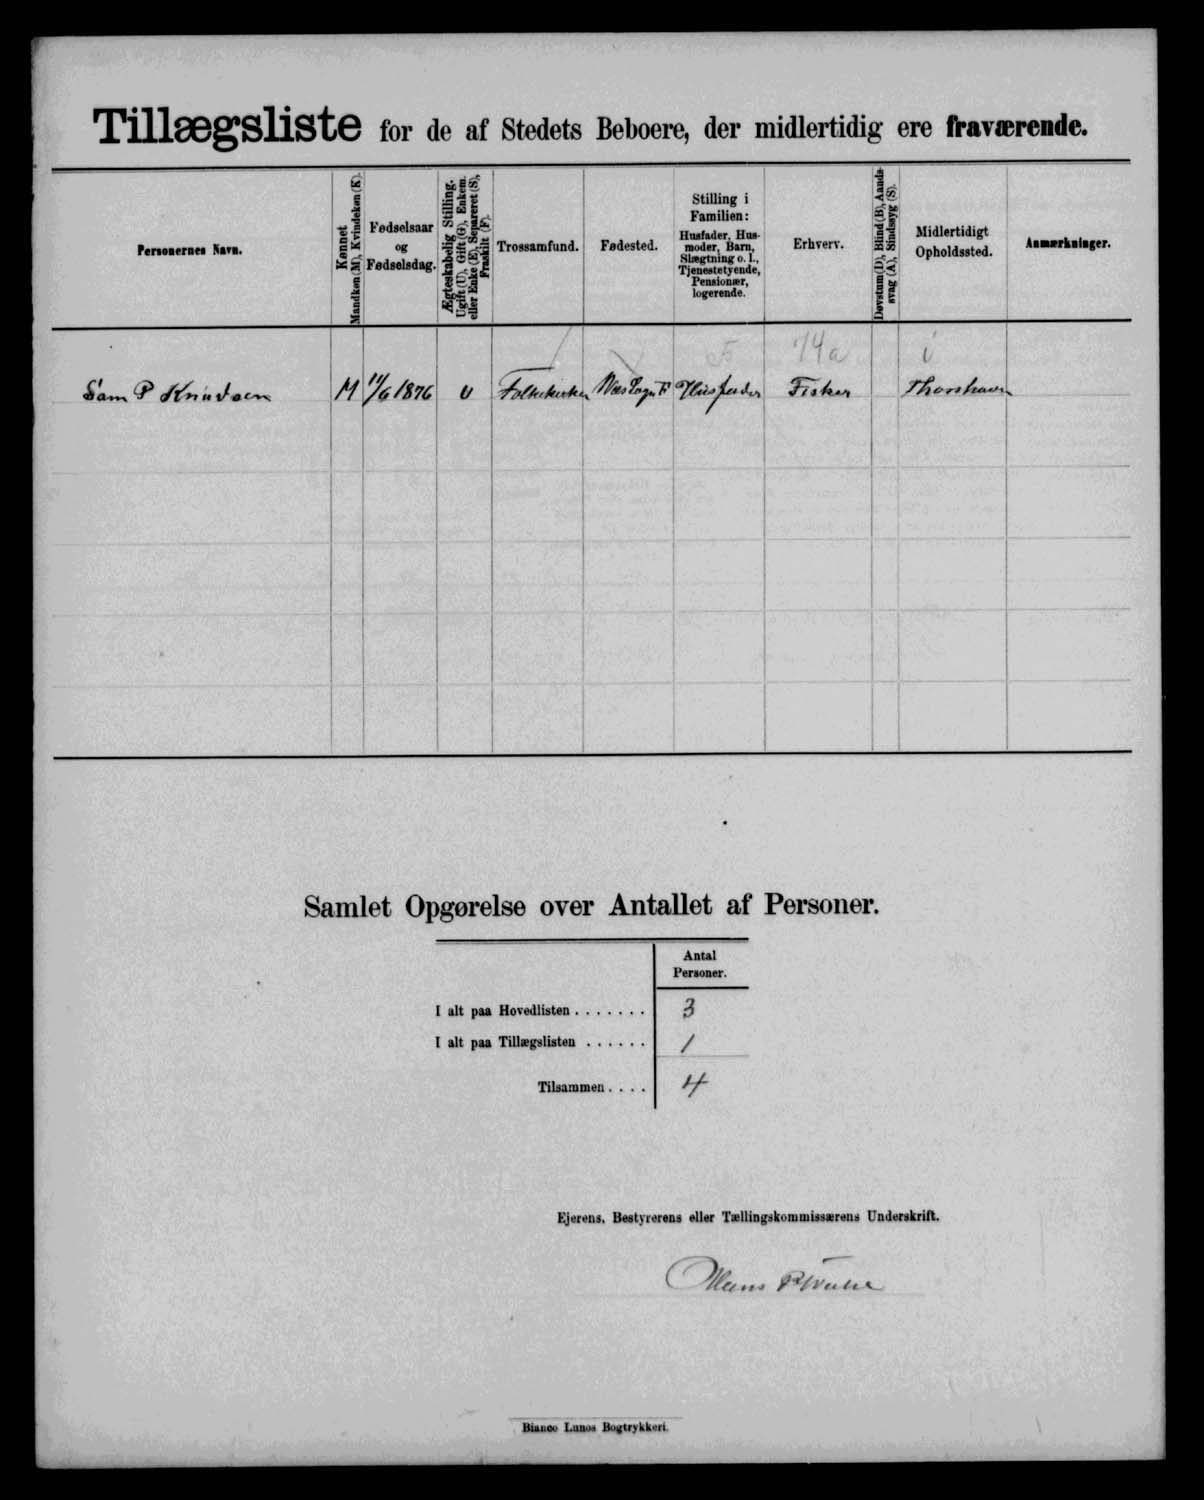 Tillægsliste for de af Stedets Beboere, der midlertidig ere fraværende.
Personernes Navn.
Kønnet
Mandkøn (M), Kvindekøn (K).
Fødselsaar
og
Fødselsdag.
Ægteskabelig Stilling.
Ugift (U), Gift (G), Enkem.
eller Enke (E), Separeret (S),
Fraskilt (F).
Trossamfund.
Fødested.
Stilling i
Familien:
Husfader, Hus-
moder, Barn,
Slægtning o. l.,
Tjenestetyende,
Pensionær,
logerende.
Erhverv.
Døvstum (D), Blind (B), Aands-
svag (A), Sindssyg (S).
Midlertidigt
Opholdssted.
Anmærkninger.
F 14a i
Sam P Knudsen M 11/6 1876 U Folkekirken Husfader Fisker Thorshavn
Samlet Opgørelse over Antallet af Personer.
Antal
Personer.
I alt paa Hovedlisten . . . . . . . 3
I alt paa Tillægslisten . . . . . . 1
Tilsammen . . . . 4
Ejerens, Bestyrerens eller Tællingskommissærens Underskrift.
Hans
Bianco Lunos Bogtrykkeri.